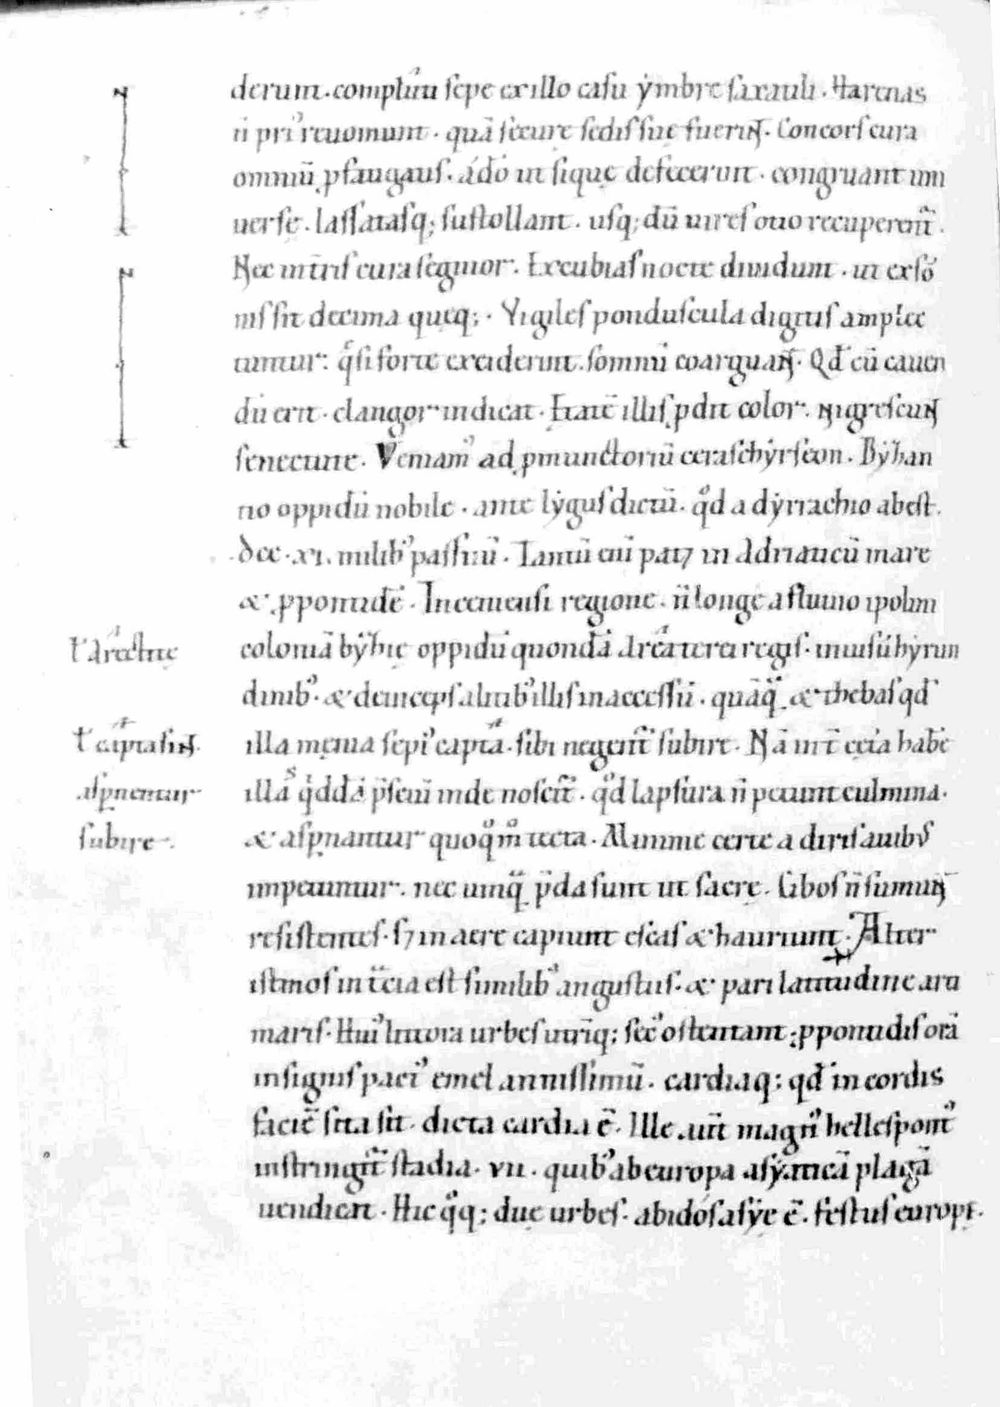 derum. compluri sepe ex illo casu ymbre saxauli. Harenas
n̄ pri' reuomunt. quā secure sedis sue fuerint. Concors cura
omniū p fatigatis. ádó ut sique defecerint. congruant uni
uerse. lassatasq; sustollant. usq; dū uires otio recuperent̄.
Nec in tr̄is cura segnior. Excubias nocte diuidunt. ut exsō
nis sit decima queq;. Vigiles ponduscula digitis amplec
tuntur: q̄ si forte exciderint. somnū coarguant. Qd̄ cū cauen
dū erit. clangor indicat. Etatē illis pdit color. nigrescunt
senectute. Veniam' ad pmunctoriū ceras chyrseon. Byzan
tio oppidū nobile. ante lygus dictū. qd̊ a dyrrachio abest.
.dcc. xi. milib' passuū. Tantū eni pat& in Adriaticū mare
&. ppontidē. In cenensi regione. n̄ longe a fluuio ipolim
l' Arcestue
coloniā byzie oppidū quondā arcā tere regis. inuisū hyrun
dinib'. & deinceps alitib' illis inaccessū. quāq̄ & thebas qd̄
l' captasint.
illa męnia sepi' capta. sibi negent̄ subire. Nā int̄ cetā habē
aspnentur
illā qddā p̄sciū inde noscit̄. qd̊ lapsura n̄ petunt culmina.
subire.
& aspnantur quoq̊ m̊ tecta. Minime certe a diris auibus
impetuntur. nec umq̄ p̄da sunt ut sacre. Cibos n̄ sumunt
resistentes. s& in aere capiunt escas & hauriunt. Alter
istmos in t̄cia est similib' angustus. & pari latitudine arti
maris. Hui' littora urbes utriq; sec' ostentant; ppontidis orā
insignis pact' emet annissimū. cardiaq; qd̄ in cordis
faciē sita sit. dicta cardia ē. Ille aut̄ magn' hellespont'
instringit̄ stadia. vii. quib' ab europa asyaticā plagā
uendicat. Hic q̊q; due urbes. abidós asye ē. sestus europe.